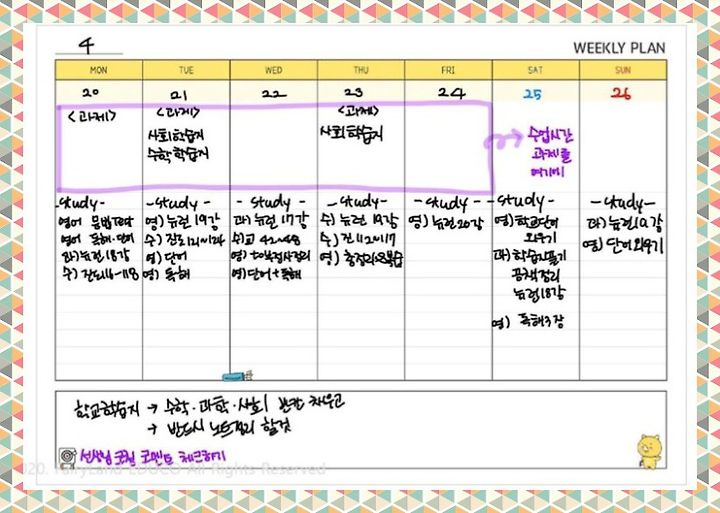 4
WEEKLY PLAN
MON TUE WED THU FRI SAT SUN
20 21 22 23 24 25 26
<과제>
<과제>
사회학습지
수학학습지
<과제>
사회학습지
수업시간
과제를
여기에
-study-
영어 문법
영어 독해·단어
과) 뉴런 18강
수) 쎈 116-118
-study-
영) 뉴런 19강
수) 121~124
영) 단어
영) 독해
-study-
과) 뉴런 17강
수) 교 42~48
영)
영) 단어+독해
-study-
수) 뉴런 19강
수)
영)
-study-
영) 뉴런 20강
-study-
영) 학교단어
외우기
과) 학습
공책정리
뉴런 18강
영) 독해 3장
-study-
과) 뉴런
영) 단어외우기
학교학습지 → 수학·과학·사회 빈칸 채우고
→ 반드시 노트정리 할것
선생님 코칭 코멘트 체크하기
All Rights Reserved